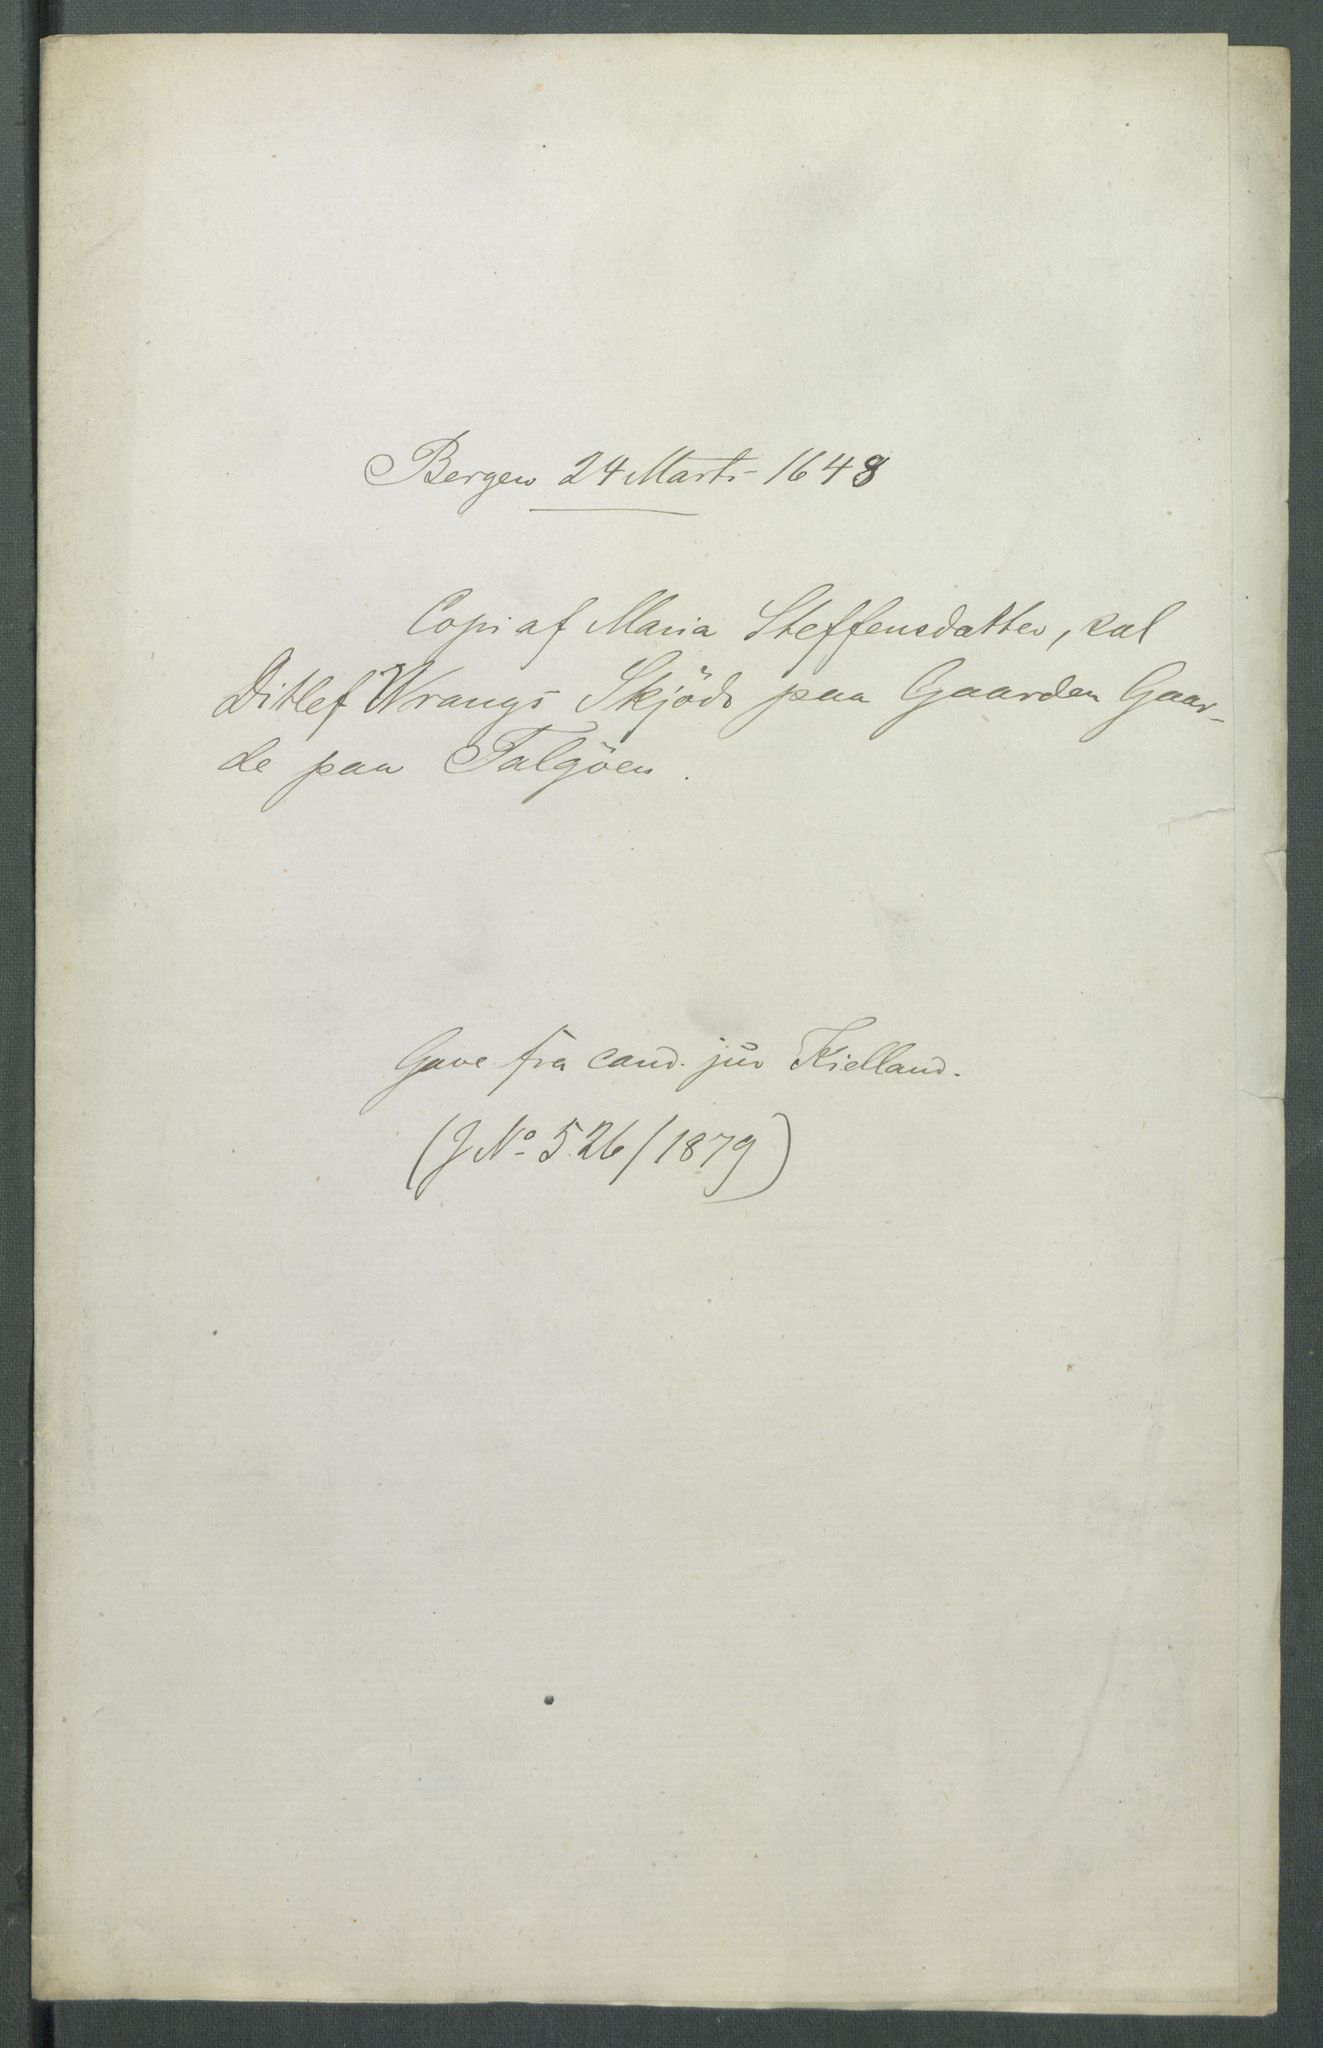 Bergen 24 Marts 1648
Copi af Maria Steffensdatter, sal
Ditlef Wrangs Skjöde paa Gaarden Gaar-
de paa Talgöen.
Gave fra cand. jur Kielland.
(J No 526/1879)